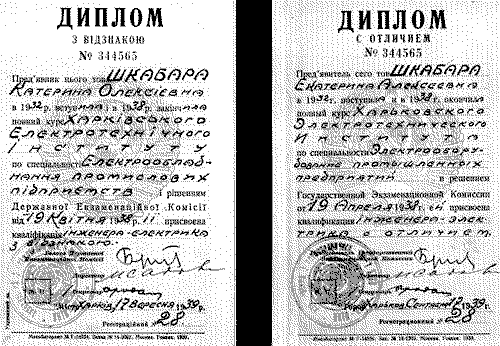 ДИПЛОМ
З ВІДЗНАКОЮ
№ 344565
Пред'явник цього тов. ШКАБАРА
КАТЕРИНА ОЛЕКСІЇВНА
в 1932 р. вступила і в 1938 р. закінчила
повний курс ХАРКІВСЬКОГО
ЕЛЕКТРОТЕХНІЧНОГО
ІНСТИТУТУ
по спеціальності ЕЛЕКТРООБЛАД-
НАННЯ ПРОМИСЛОВИХ
ПІДПРИЄМСТВ і рішенням
Державної Екзаменаційної Комісії
від 19 КВІТНЯ 1938 р. її присвоєна
кваліфікація ІНЖЕНЕРА-ЕЛЕКТРИКА
З ВІДЗНАКОЮ.
Голова Державної
Екзаменаційної Комісії
Директор
Секретар
Місто Харків 17 ВЕРЕСНЯ 1939 р.
Реєстраційний № 28
ДИПЛОМ
С ОТЛИЧИЕМ
№ 344565
Пред'явитель сего тов. ШКАБАРА
ЕКАТЕРИНА АЛЕКСЕЕВНА
в 1932 г. поступила и в 1938 г. окончила
полный курс ХАРЬКОВСКОГО
ЭЛЕКТРОТЕХНИЧЕСКОГО
ИНСТИТУТА
по специальности ЭЛЕКТРООБОРУ-
ДОВАНИЕ ПРОМЫШЛЕННЫХ
ПРЕДПРИЯТИЙ и решением
Государственной Экзаменационной Комиссии
от 19 АПРЕЛЯ 1938 г. ей присвоена
квалификация ИНЖЕНЕРА-ЭЛЕК-
ТРИКА С ОТЛИЧИЕМ.
Председатель Государственной
Экзаменационной Комиссии
Директор
Секретарь
Город Харьков Сентябр 17 1939 г.
Регистрационный № 28